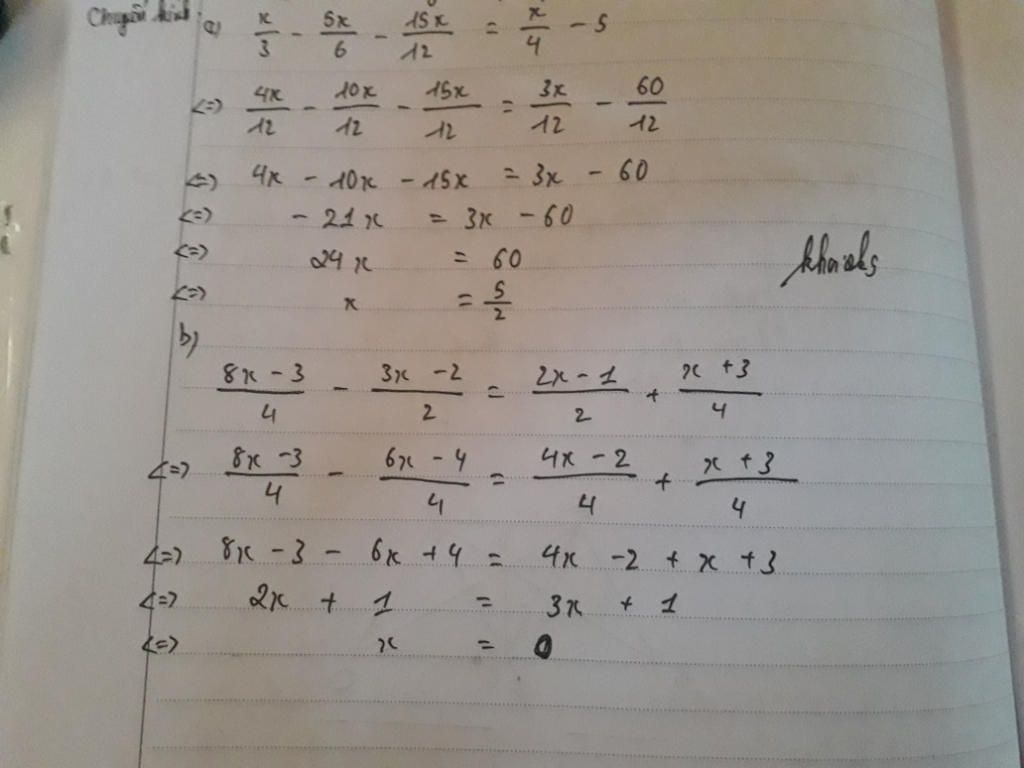 a) x/3 - 5x/6 - 15x/12 = x/4 - 5
<=> 4x/12 - 10x/12 - 15x/12 = 3x/12 - 60/12
<=> 4x - 10x - 15x = 3x - 60
<=> - 21x = 3x - 60
<=> 24x = 60
<=> x = 5/2
b)
8x - 3/4 - 3x - 2/2 = 2x - 1/2 + x + 3/4
<=> 8x - 3/4 - 6x - 4/4 = 4x - 2/4 + x + 3/4
<=> 8x - 3 - 6x + 4 = 4x - 2 + x + 3
<=> 2x + 1 = 3x + 1
<=> x = 0